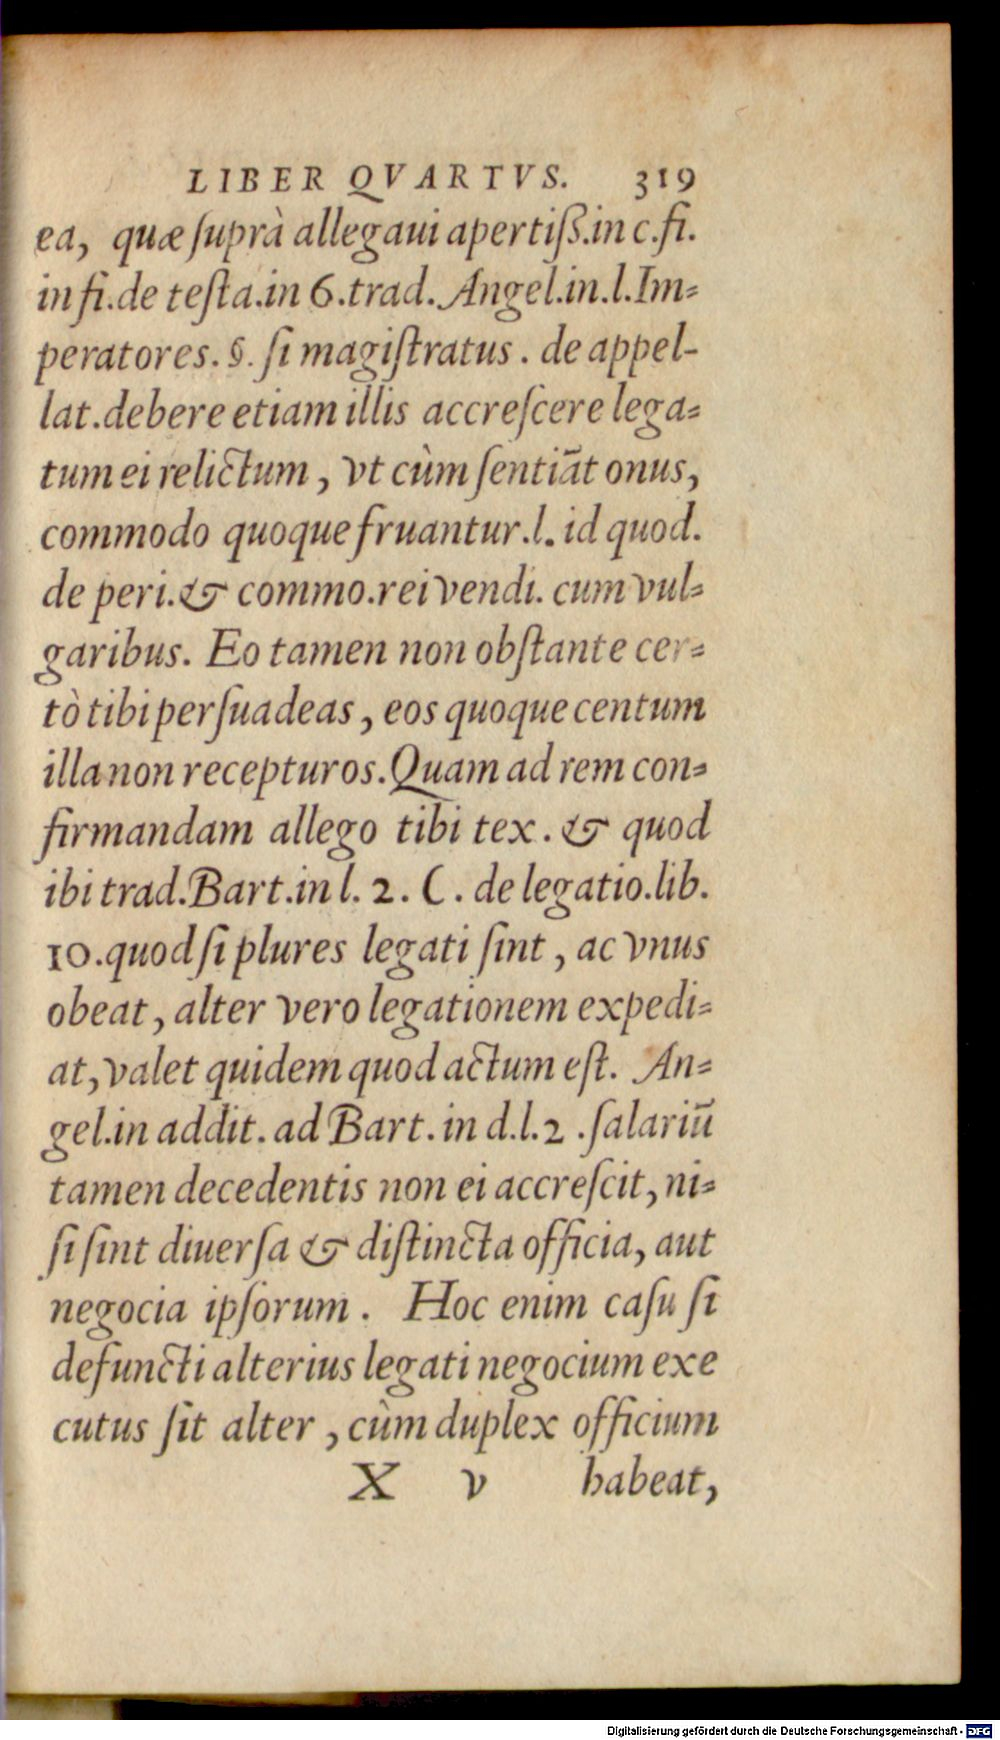 LIBER QVARTVS. 319
ea, quæ ſuprà allegaui apertiß.in c.fi.
in fi.de teſta.in 6.trad.Angel.in.l.Im-
peratores.§.ſi magiſtratus. de appel-
lat.debere etiam illis accreſcere lega-
tum ei relictum, vt cùm ſentiãt onus,
commodo quoque fruantur.l. id quod.
de peri.& commo.rei vendi. cum vul-
garibus. Eo tamen non obſtante cer-
tò tibi perſuadeas, eos quoque centum
illa non recepturos.Quam ad rem con-
firmandam allego tibi tex. & quod
ibi trad.Bart.in l. 2. C. de legatio.lib.
10.quod ſi plures legati ſint, ac vnus
obeat, alter vero legationem expedi-
at, valet quidem quod actum eſt. An-
gel.in addit. ad Bart. in d.l.2 .ſalariũ
tamen decedentis non ei accreſcit, ni-
ſi ſint diuerſa & diſtincta officia, aut
negocia ipſorum. Hoc enim caſu ſi
defuncti alterius legati negocium exe
cutus ſit alter, cùm duplex officium
X v habeat,
Digitalisierung gefördert durch die Deutsche Forschungsgemeinschaft - DFG